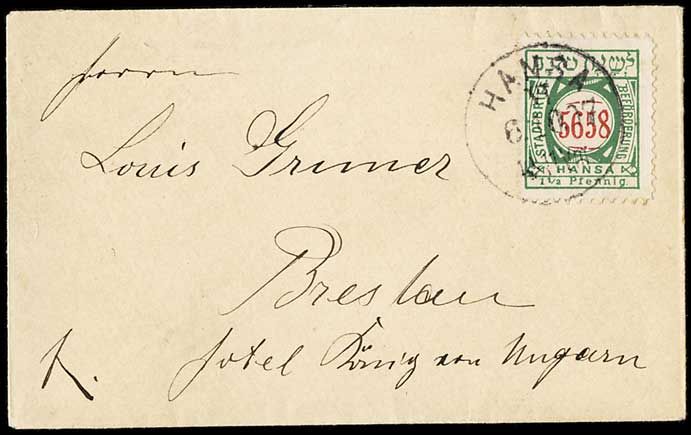 Herrn
Louis Gruner
Breslau
Hotel König von Ungarn
HANSA
STADTBRIEF
BEFÖRDERUNG
5658
HANSA
1½ Pfennig.